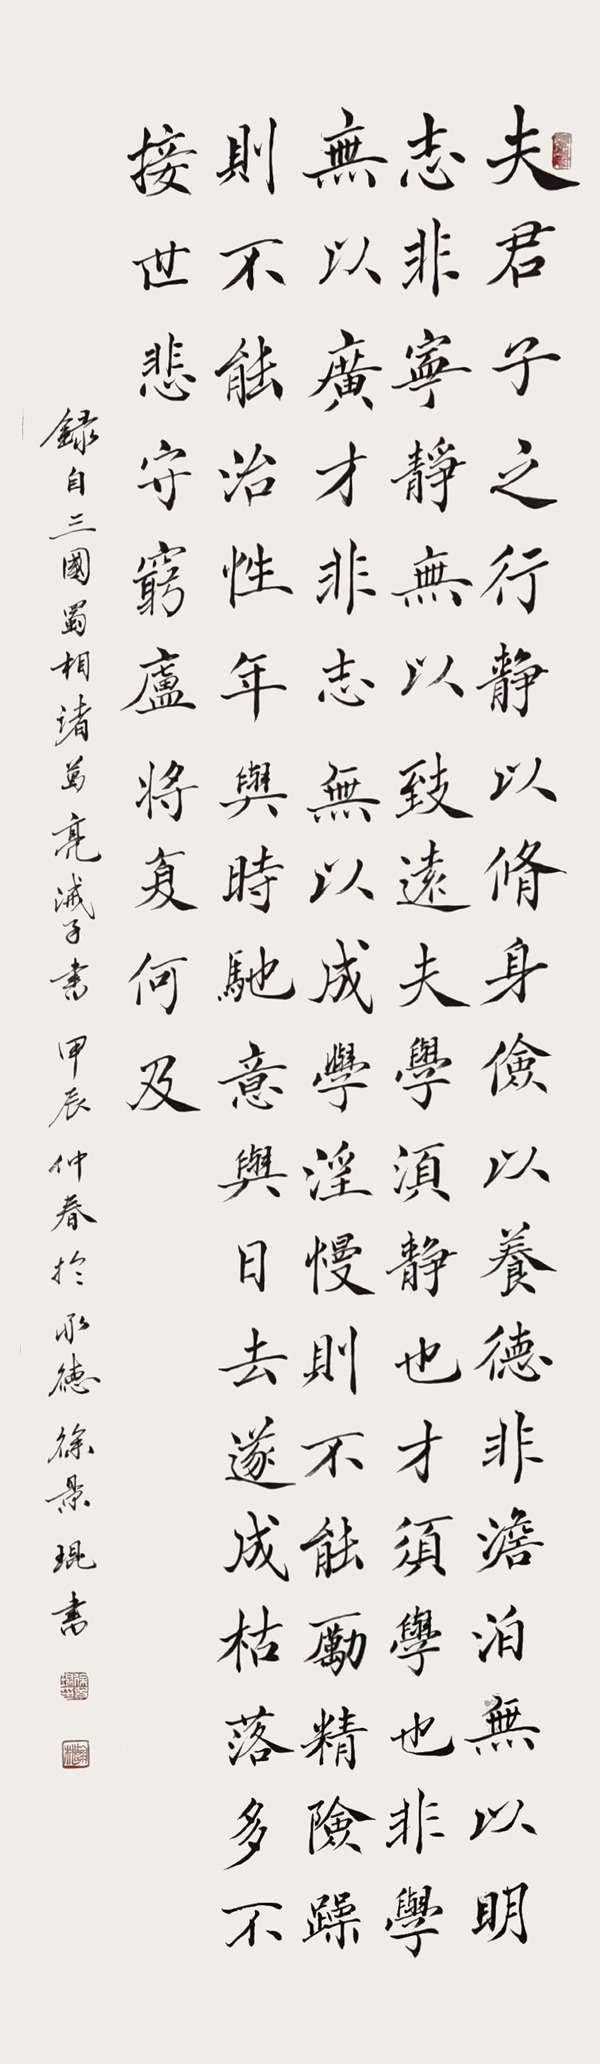 夫君子之行静以脩身儉以養德非澹泊無以明
志非寧靜無以致遠夫學須静也才須學也非學
無以廣才非志無以成學淫慢則不能勵精險躁
則不能治性年與時馳意與日去遂成枯落多不
接世悲守窮廬将复何及
録自三國蜀相諸葛亮誡子书 甲辰仲春於承德 徐景琨书